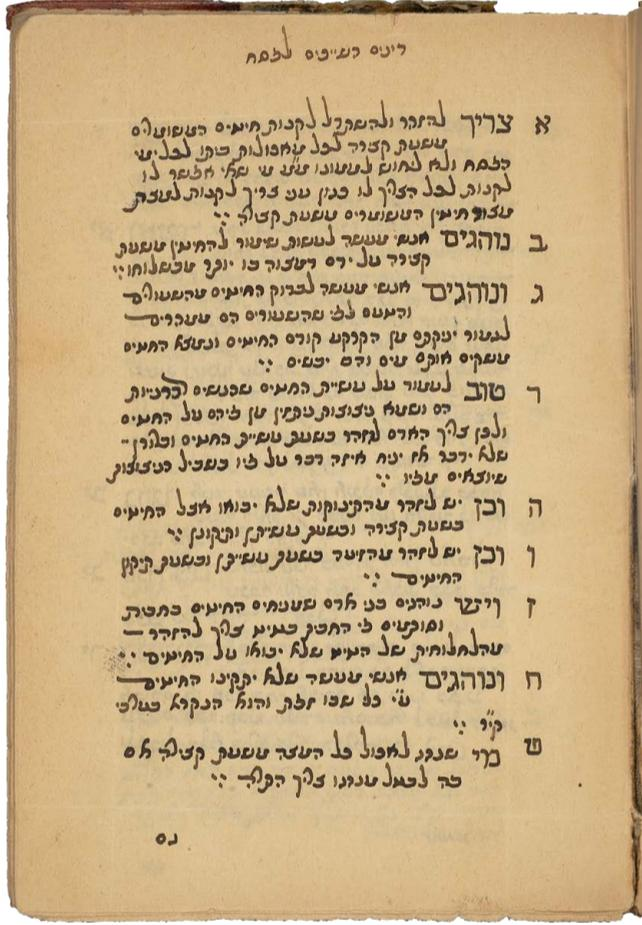 דינים השייכים לפסח
א צריך להזהר ולהשתדל לקנות חיטים השמורים
משעת קצירה לכל מאכולות ביתו לכל ימי
הפסח ולא לחוש לממונו ומ״מ מי שאי אפשר לו
לקנות לכל הצריך לו כגון עני צריך לקנות למצת
מצוה חיטין המשומרים משעת קצירה :
ב נוהגים אנשי מעשה לעשות שימור להחיטין משעת
קצירה על ידם דמצוה בו יותר מבשלוחו :
ג ונוהגים אנשי מעשה לבדוק החיטים מהשעורים
והטעם לפי שהשעורים הם ממהרים
לעקור יניקתם מן הקרקע קודם החיטים ונמצא החיטים
משקים אותם מים והם יבשים :
ד טוב לעמוד על עשיית החיטים שהנשים
הם ושמא ניצוצות ניתזין מן פיהם על החיטים
ולכן צריך האדם להזהר בשעת עשיית החיטים
שלא ידבר או יניח איזה דבר על פיו בשביל הניצוצות
שיוצאים מפיו :
ה וכן יש להזהר מהתינוקות שלא יבואו אצל החיטים
בשעת קצירה ובשעת עשייתן ותיקונן :
ו וכן יש להזהר מהזיעה בשעת עשייתן ובשעת תיקון
החיטים :
ז נוהגים בני אדם שמניחים החיטים בחבית
וסותמים פי החבית בטיט צריך להזהר
מהלחלוחית של המים שלא יבואו על החיטים :
ח ונוהגים אנשי מעשה שלא יתקינו החיטים
ע״י כל שבו זפת והוא הנקרא
קיר :
ט מי שנדר לאכול כל המצה משעת קצירה אם
בה לבטל מנדרו צריך התרה :
נס